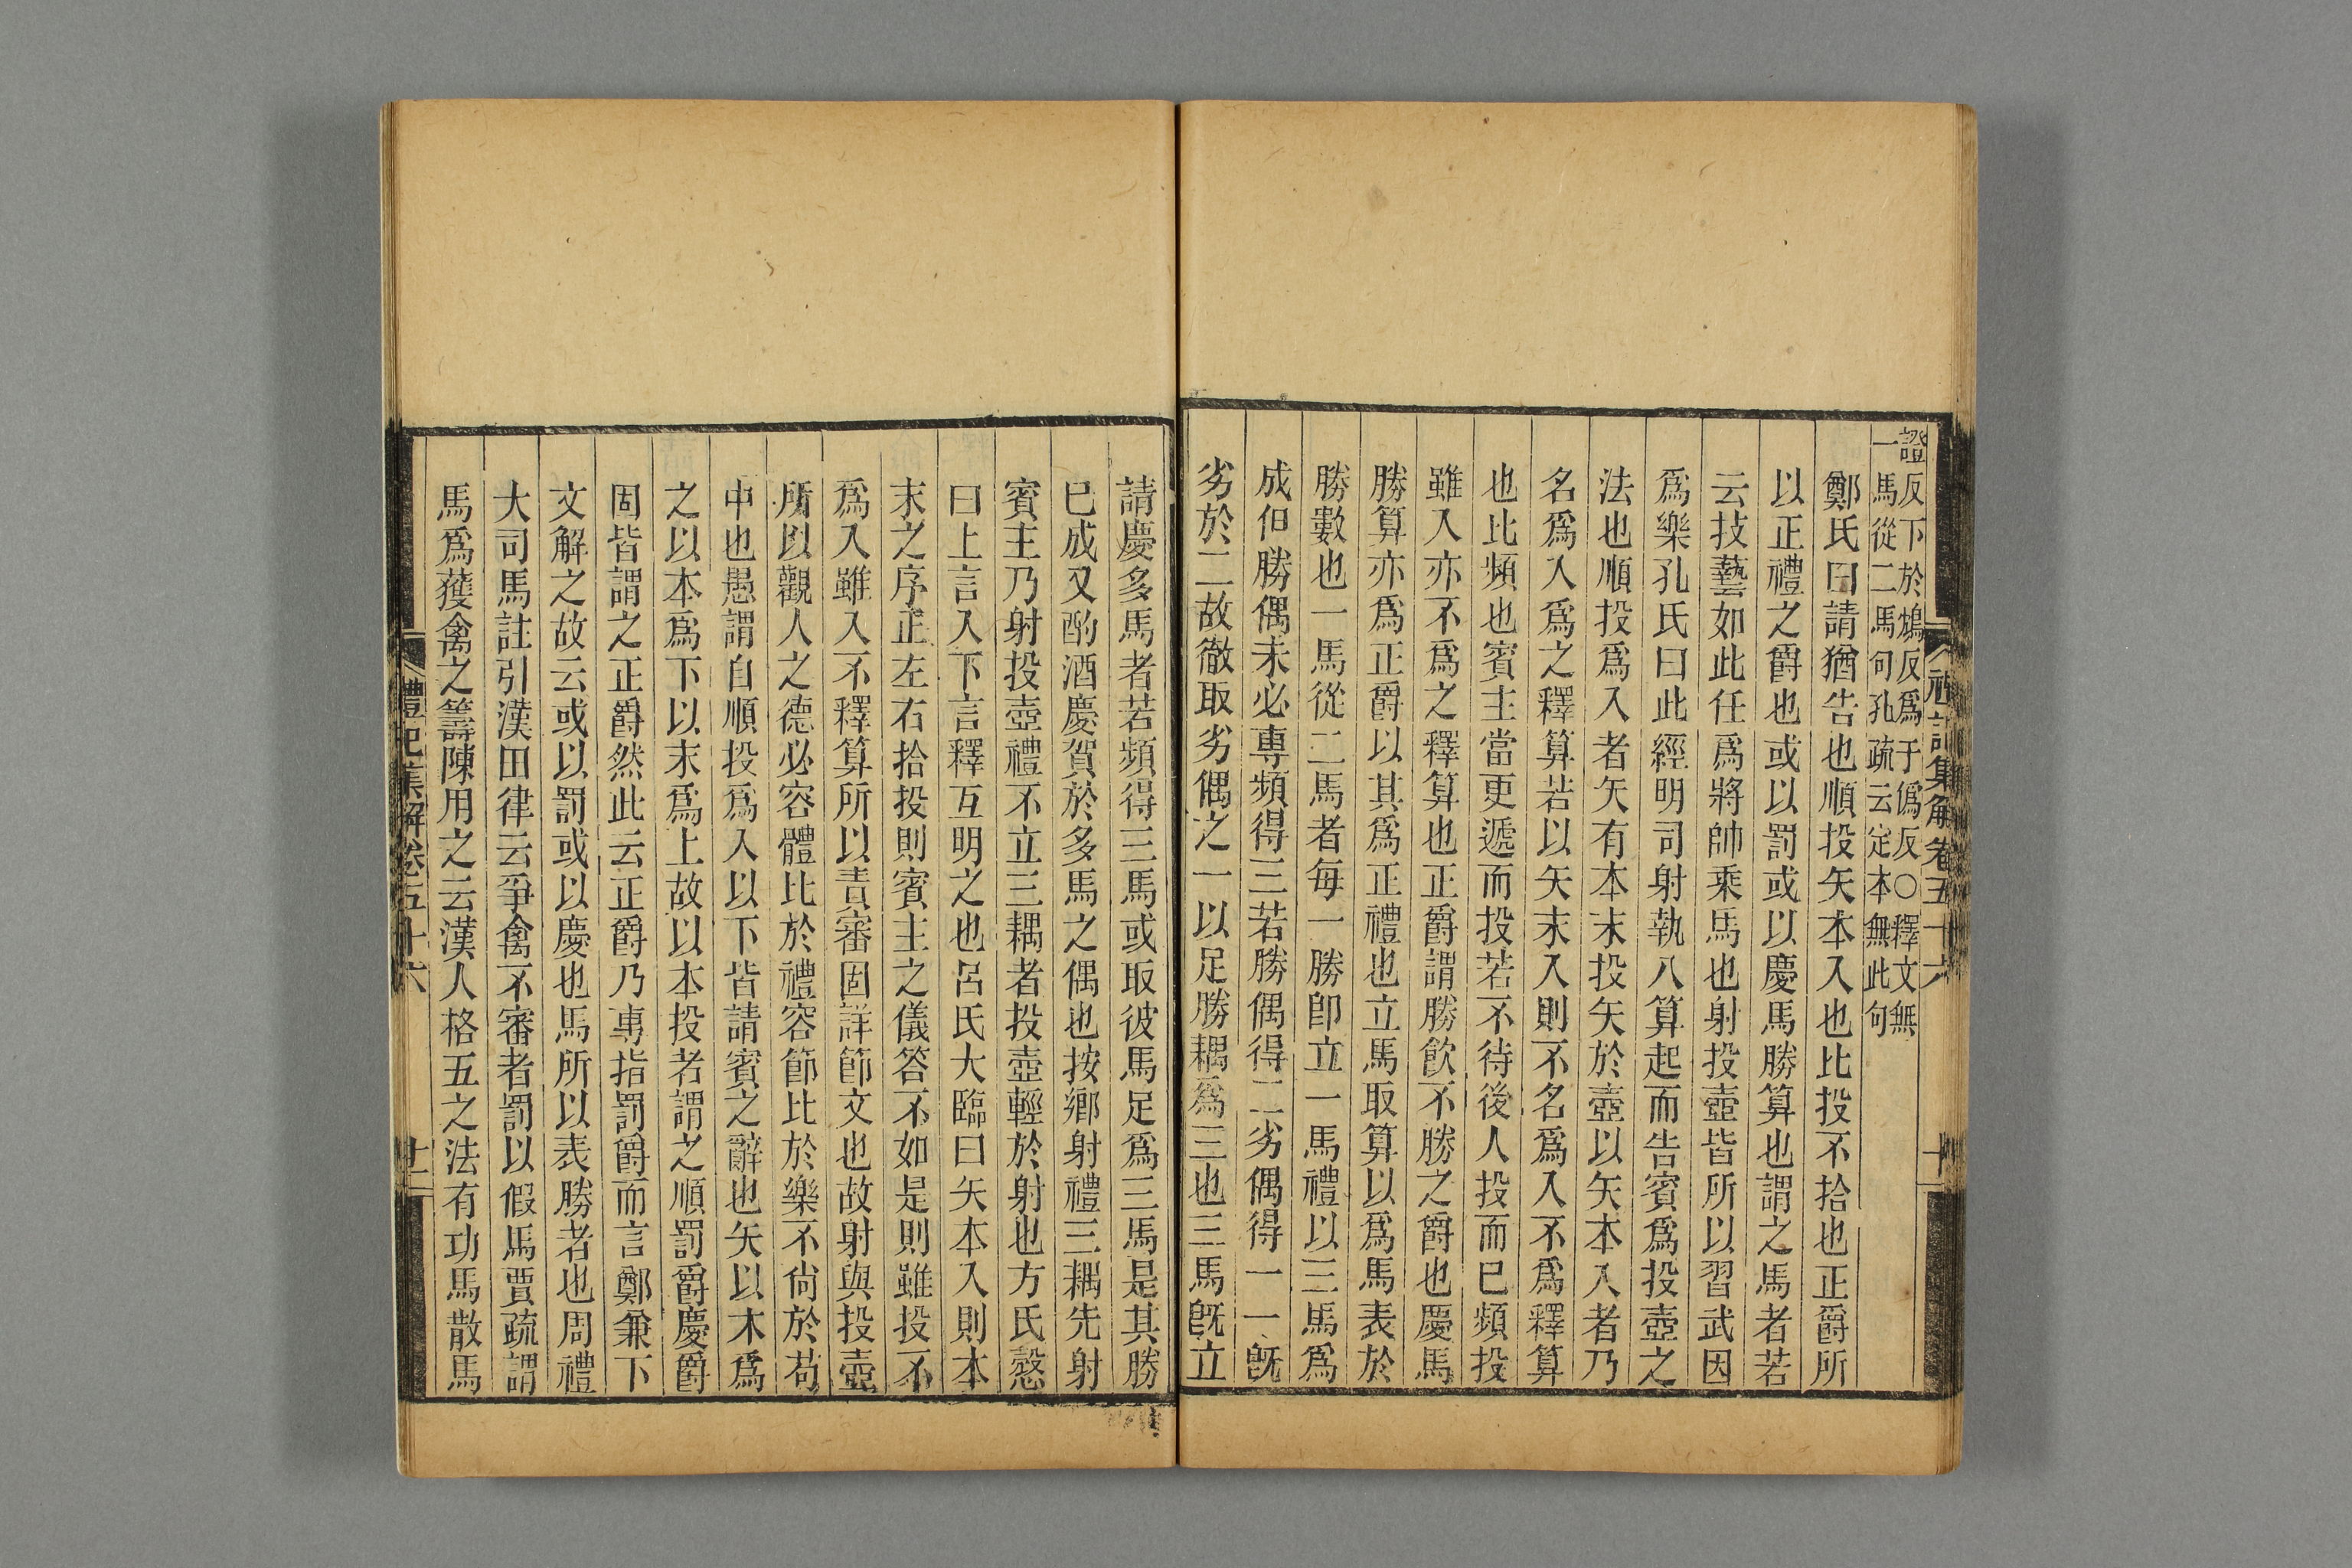 禮記集解卷五十六
十
證反下於鴆反爲于僞反○釋文無
一馬從二馬句孔疏云定本無此句
鄭氏曰請猶告也順投矢本入也比投不拾也正爵所
以正禮之爵也或以罰或以慶馬勝算也謂之馬者若
云技藝如此任爲將帥乘馬也射投壺皆所以習武因
爲樂孔氏曰此經明司射執八算起而告賓爲投壺之
法也順投爲入者矢有本末投矢於壺以矢本入者乃
名爲入爲之釋算若以矢末入則不名爲入不爲釋算
也比頻也賓主當更遞而投若不待後人投而已頻投
雖入亦不爲之釋算也正爵謂勝飮不勝之爵也慶馬
勝算亦爲正爵以其爲正禮也立馬取算以爲馬表於
勝數也一馬從二馬者每一勝卽立一馬禮以三馬爲
成但勝偶未必專頻得三若勝偶得二劣偶得一一旣
劣於二故徹取劣偶之一以足勝耦爲三也三馬旣立
請慶多馬者若頻得三馬或取彼馬足爲三馬是其勝
已成又酌酒慶賀於多馬之偶也按鄉射禮三耦先射
賓主乃射投壺禮不立三耦者投壺輕於射也方氏慤
曰上言入下言釋互明之也呂氏大臨曰矢本入則本
末之序正左右拾投則賓主之儀答不如是則雖投不
爲入雖入不釋算所以責審固詳節文也故射與投壺
所以觀人之德必容體比於禮容節比於樂不尙於苟
中也愚謂自順投爲入以下皆請賓之辭也矢以木爲
之以本爲下以末爲上故以本投者謂之順罰爵慶爵
固皆謂之正爵然此云正爵乃專指罰爵而言鄭兼下
文解之故云或以罰或以慶也馬所以表勝者也周禮
大司馬註引漢田律云爭禽不審者罰以假馬賈疏謂
馬爲獲禽之籌陳用之云漢人格五之法有功馬散馬
禮記集解卷五十六
廿一